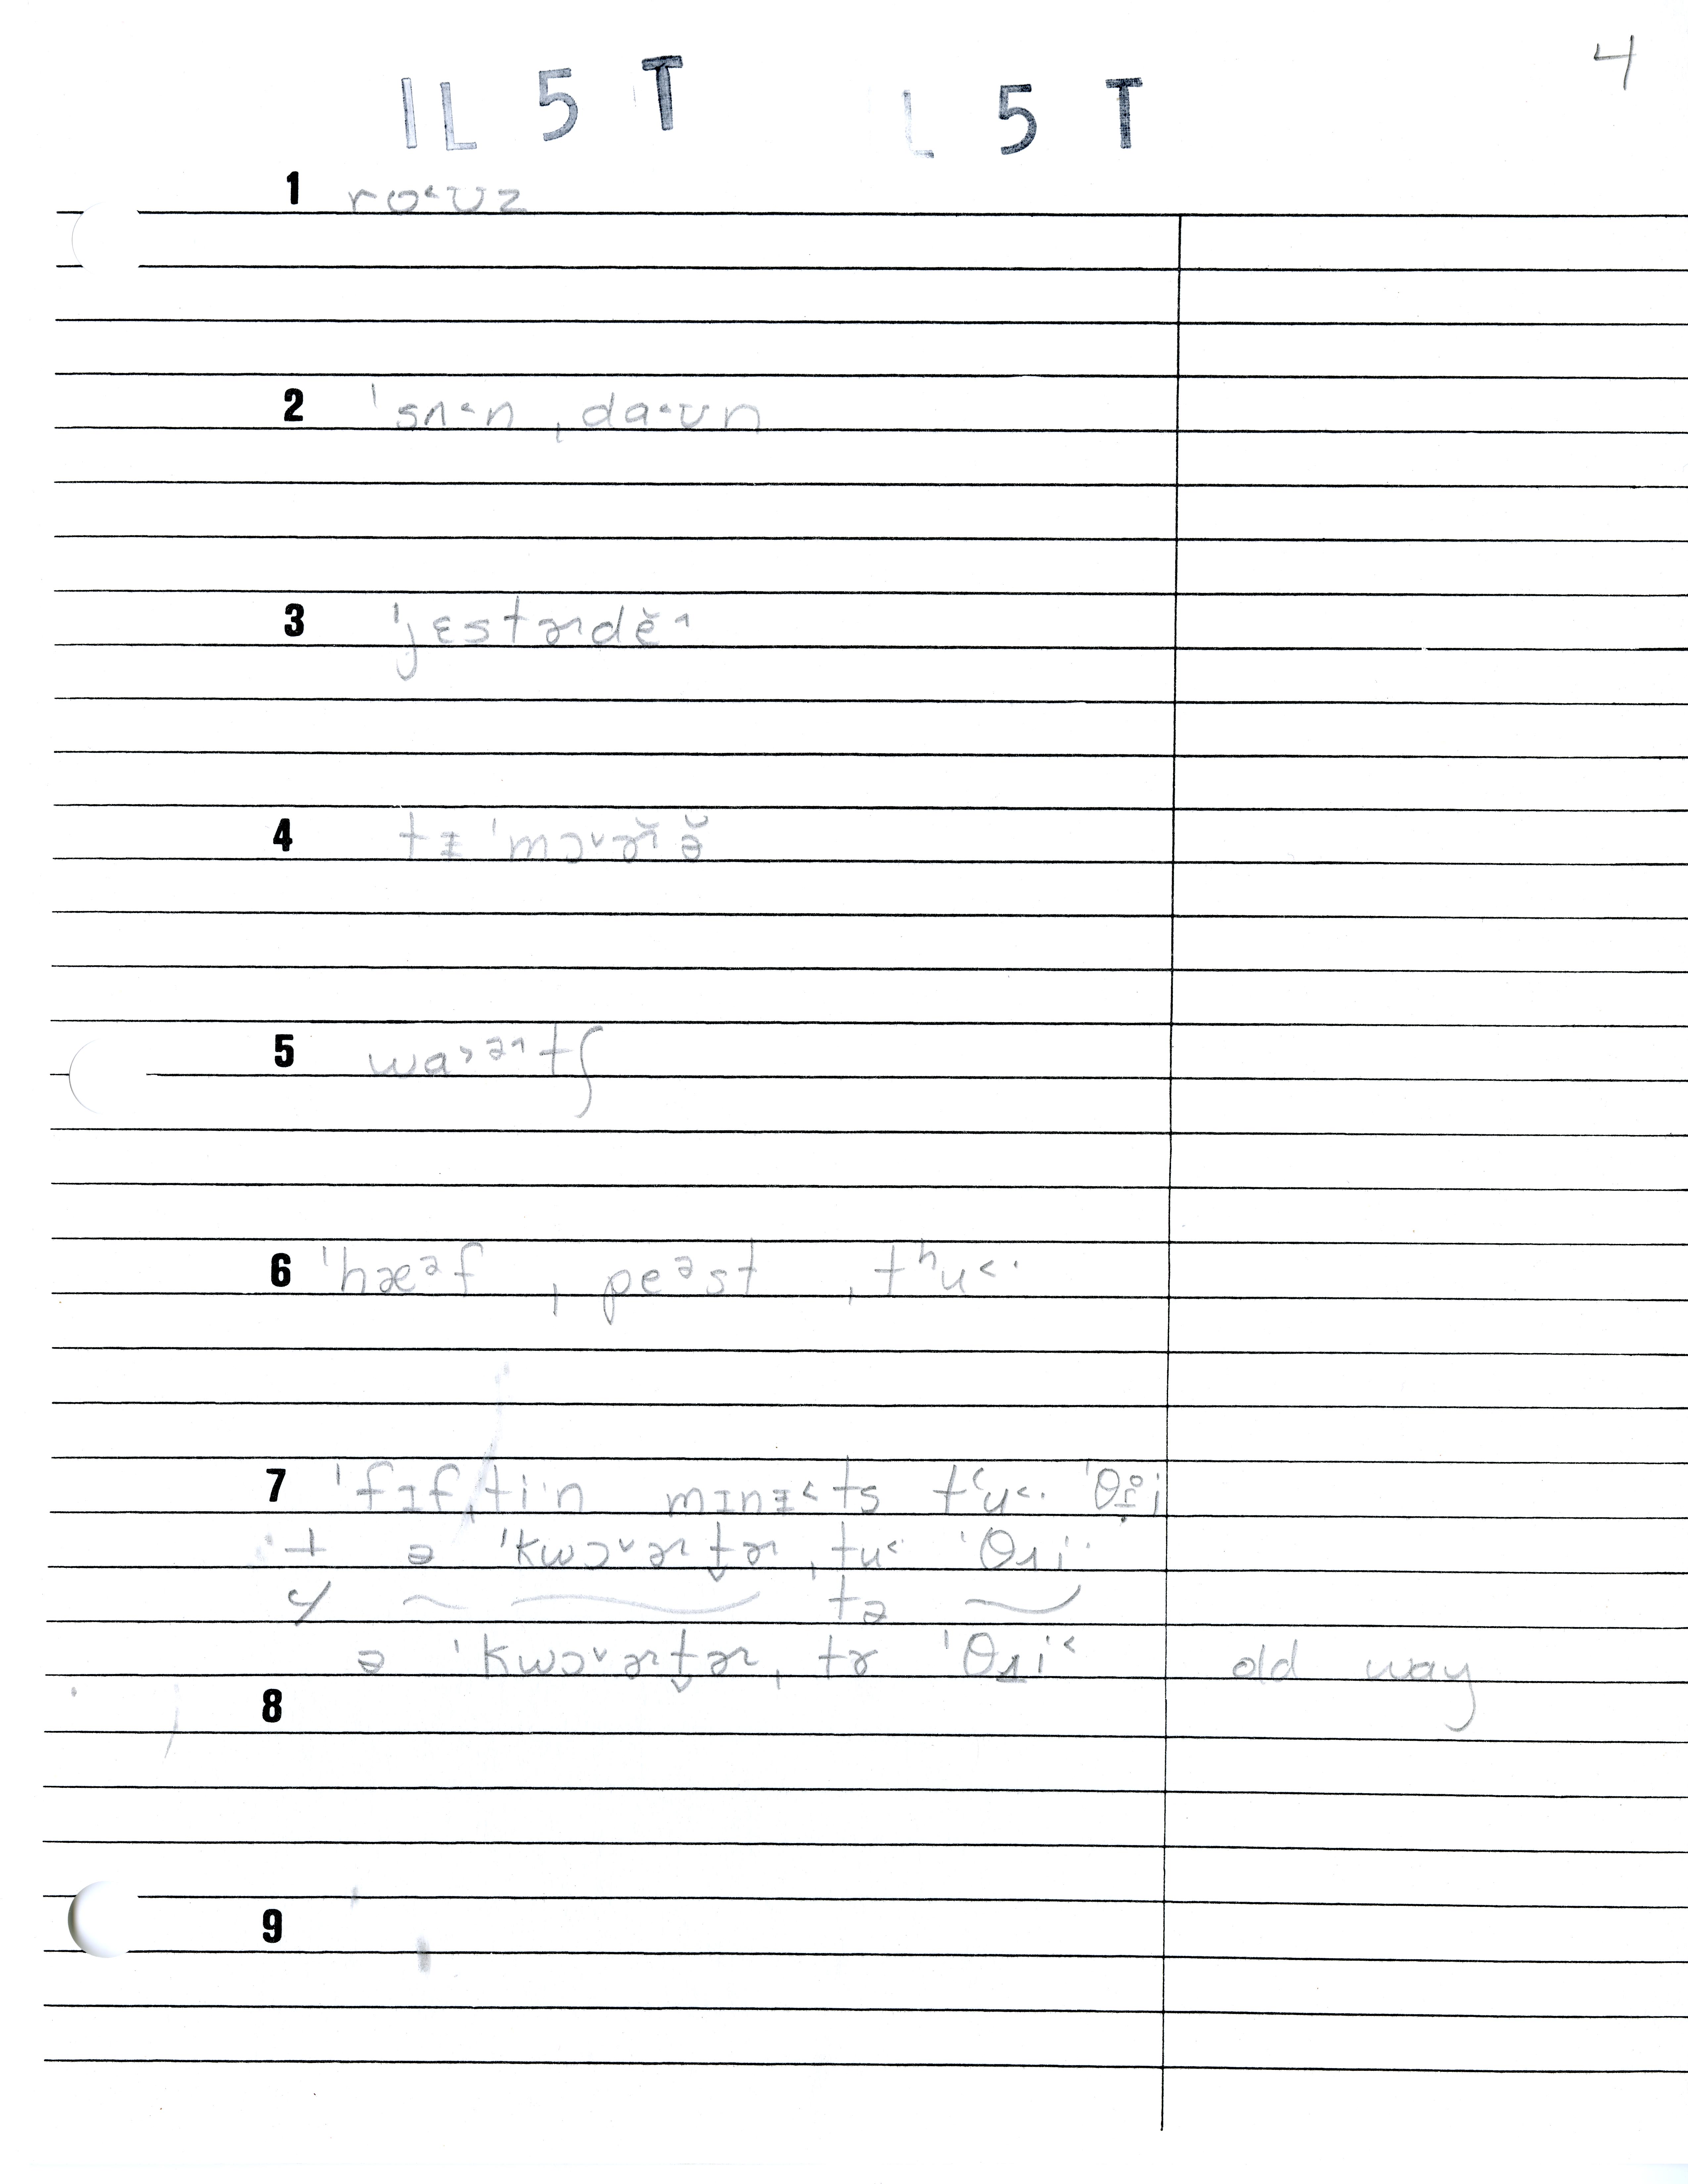 4
IL 5 T L 5 T
1 ro˂ʊz
2 ˈsʌ˂n ˌda˂ʊn
3 ˈjɛstɚdĕ˄
4 tᵻ ˈmɔ˅ɚ̆ ə̆
5 wa˃ᵊ˄tʃ
6 ˈhæᵊf ˌpeᵊst ˌtʰu˂·
7 ˈfɪfˌti·n mɪnᵻ˂ts tʿu˂· ˈθɹ̥i
ə ˈkwɔ˅ɚt̬ɚ ˌtu˂ ˈθɹi·
tə
ə ˈkwɔ˅ɚt̬ɚ ˌtɚ ˈθɹi˂ old way
8
9